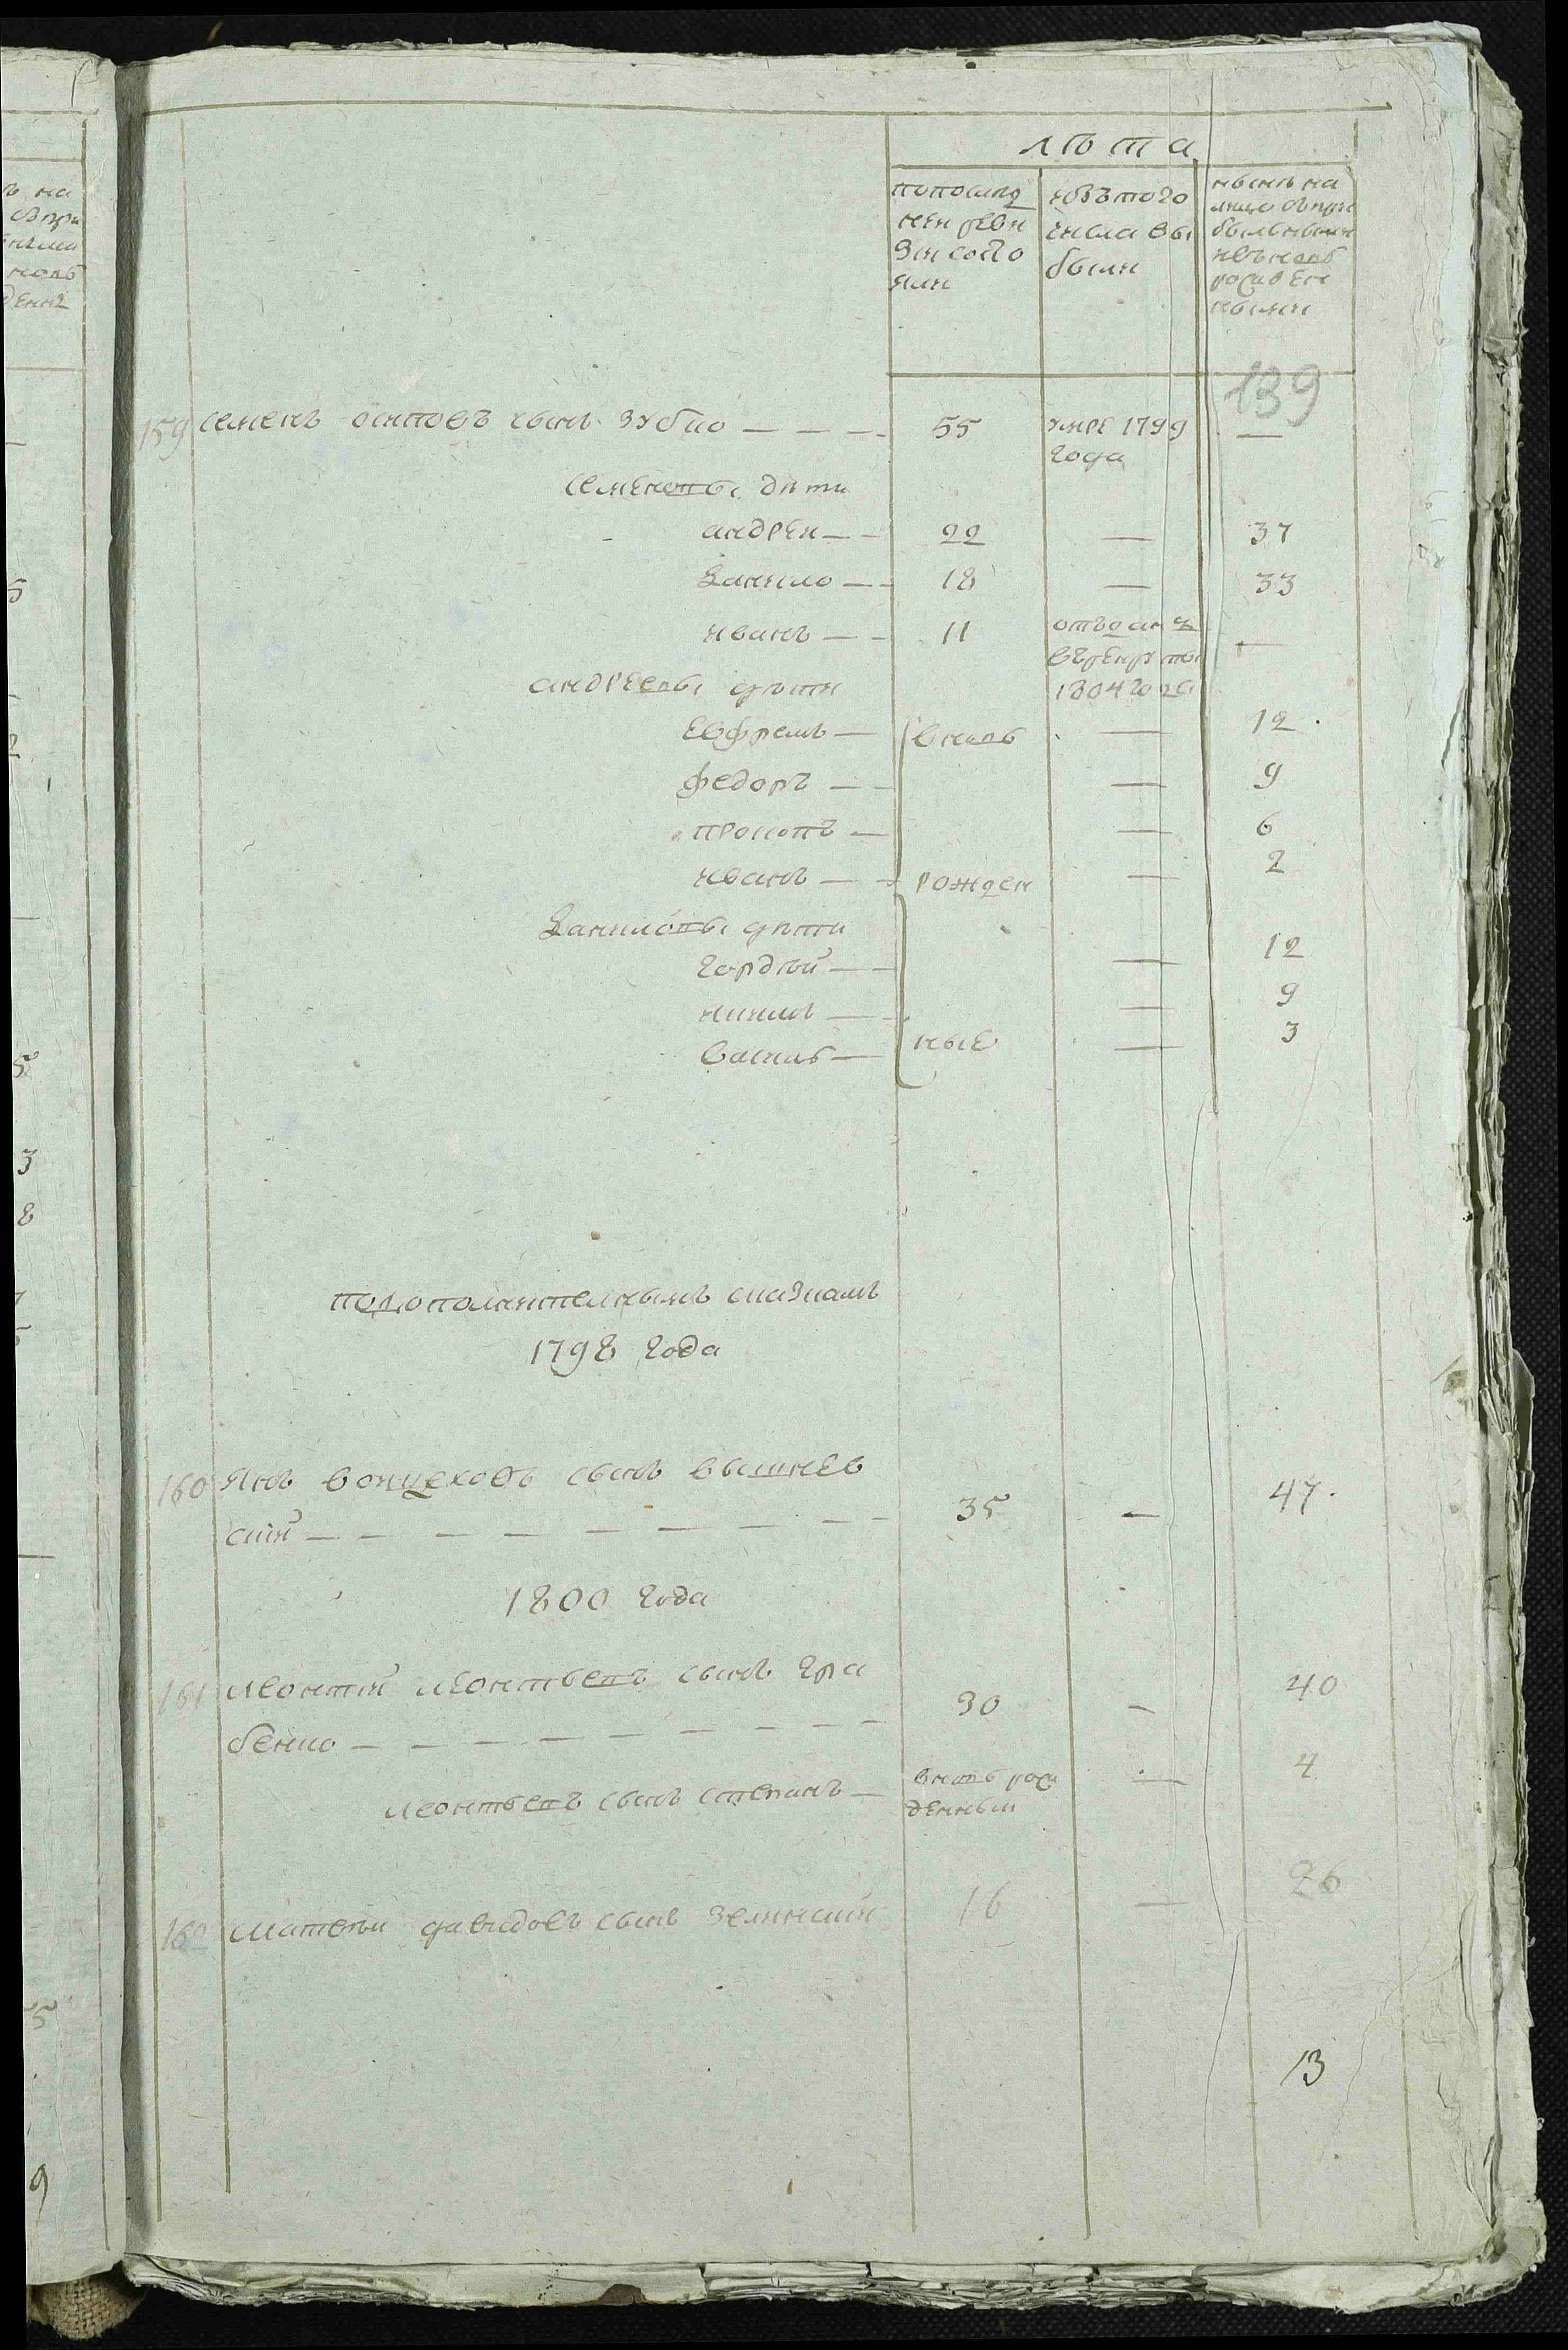 лѣта
попослед
ней реви
зіи состо
яли
изътого
числа вы
были
нынѣ на
лицо съпри
былыми
ивъновь
рожден
ными
139
159 Семенъ осиповъ сынъ Зубко — — — 55 умре 1799 —
года
Семеновы дѣти
андрей — — 22 — 37
Данило — — 18 — 33
иванъ — — 11 отъданъ —
върекруты
андреевы дѣти 1804 года
Евфремъ — вновь — 12
федоръ — — — 9
прокопъ — — 6
иванъ — — рожден — 2
Даниловы дѣти
гордѣй — — — 12
никила — — — 9
василь — ные — 3
подополнительнымъ сказкамъ
1798 года
160 Янъ воицеховъ сынъ вышнев
скій — — — — — — — — 35 — 47
1800 года
161 Леонтій леонтьевъ сынъ гра
бенко — — — — — — — — 30 — 40
леонтьевъ сынъ степанъ — вновь рож — 4
денный
162 Матвѣй давидовъ сынъ Зелинскій 16 — 26
13